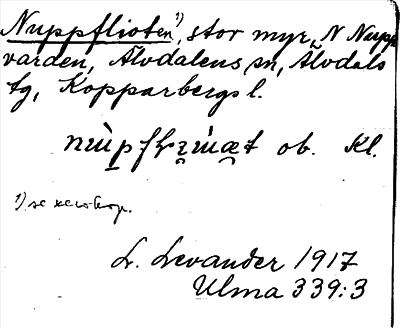 Nuppflioten,¹⁾ stor myr, N Nupp-
varden, Älvdalens sn, Älvdals
tg, Kopparbergs l.
ob. Kl.
¹⁾ se xerokop.
L. Levander 1917
Ulma 339:3